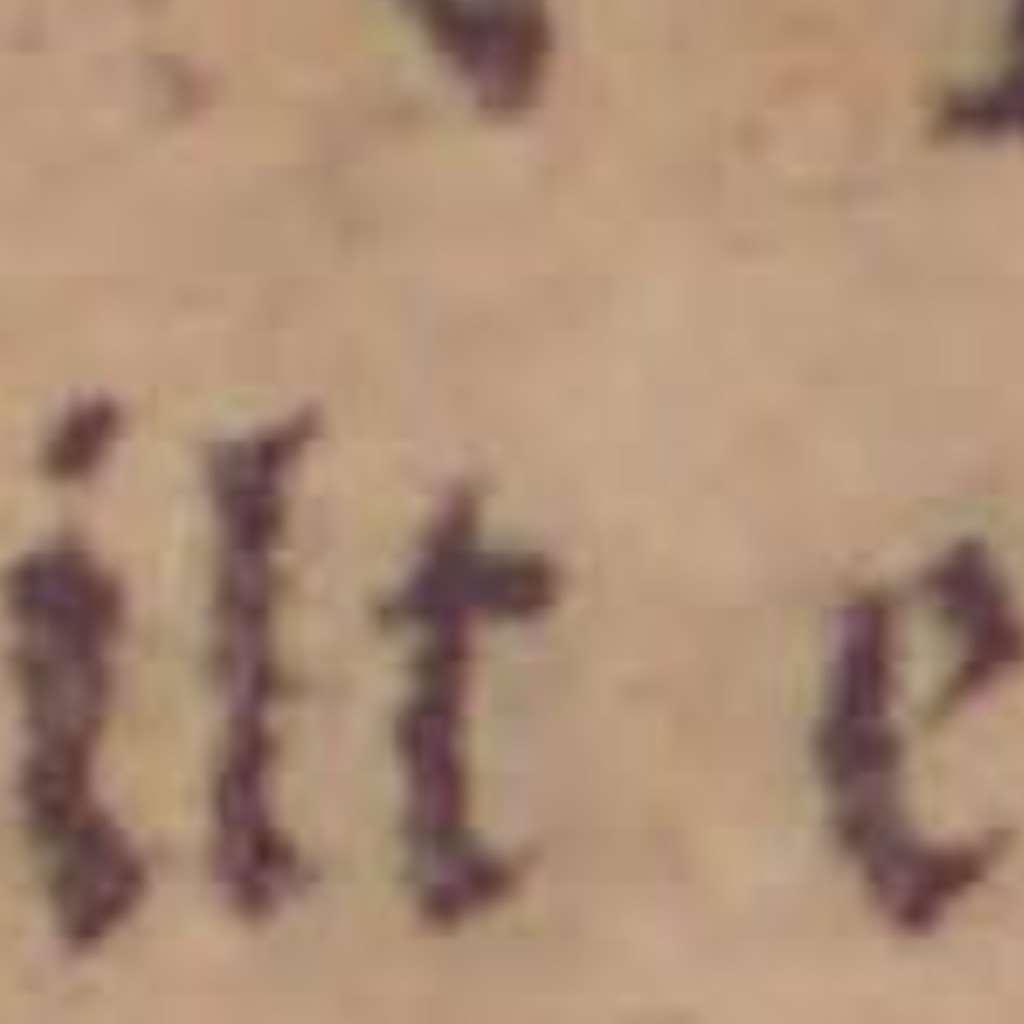 ilt e